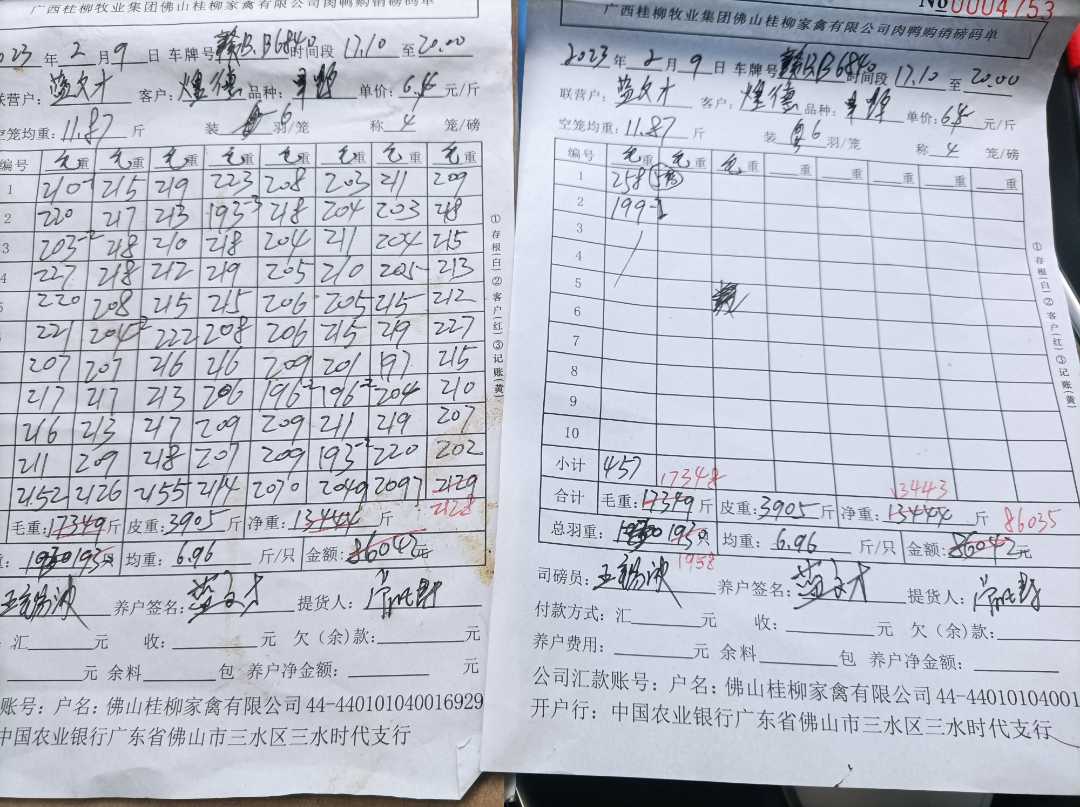 广西桂柳牧业集团佛山桂柳家禽有限公司肉鸭购销磅码单
2023 年 2 月 9 日 车牌号 赣B.B6840 时间段 17.10 至 20.00
联营户: 蓝文才 客户: 煌德 品种: 单价: 6.4 元/斤
空笼均重: 11.87 斤 装 6 羽/笼 称 4 笼/磅
编号 毛重 毛重 毛重 毛重 毛重 毛重 毛重 毛重
1 210-1 215 219 223 208 203 211 209
2 220 217 213 193-3 218 204 203 218
3 203-2 218 210 218 204 211 204 215
4 227 218 212 219 205 210 205 213
5 220 208 215 215 206 205 215 212
221 204-2 222 208 206 215 219 227
207 207 216 216 209 201 197 215
217 217 213 206 196-2 196-2 204 210
216 213 217 209 209 211 219 207
211 209 218 207 209 193-2 220 202
2152 2126 2155 2114 2070 2049 2097 2129
2128
毛重: 17349 斤 皮重: 3905 斤 净重: 13444 斤
重: 193 均重: 6.96 斤/只 金额: 86042 元
养户签名: 蓝文才 提货人:
汇 收: 元 欠（余）款: 元
元 余料 包 养户净金额: 元
账号: 户名: 佛山桂柳家禽有限公司 44-440101040016929
中国农业银行广东省佛山市三水区三水时代支行
①存根(白)②客户(红)③记账(黄)
№0004753
广西桂柳牧业集团佛山桂柳家禽有限公司肉鸭购销磅码单
2023 年 2 月 9 日 车牌号 赣B.B6840 时间段 17.10 至 20.00
联营户: 蓝文才 客户: 煌德 品种: 单价: 6.4 元/斤
空笼均重: 11.87 斤 装 6 羽/笼 称 4 笼/磅
编号 毛重 毛重 毛重 重 重 重 重 重
1 258
2 199-1
3
4
5
6
7
8
9
10
小计 457
17348 13443
合计 毛重: 17349 斤 皮重: 3905 斤 净重: 13444 斤 86035
总羽重: 193 均重: 6.96 斤/只 金额: 86042 元
1938
司磅员: 养户签名: 蓝文才 提货人:
付款方式: 汇 收: 元 欠（余）款:
养户费用: 元 余料 包 养户净金额:
公司汇款账号: 户名: 佛山桂柳家禽有限公司 44-44010104001
开户行: 中国农业银行广东省佛山市三水区三水时代支行
①存根(白)②客户(红)③记账(黄)